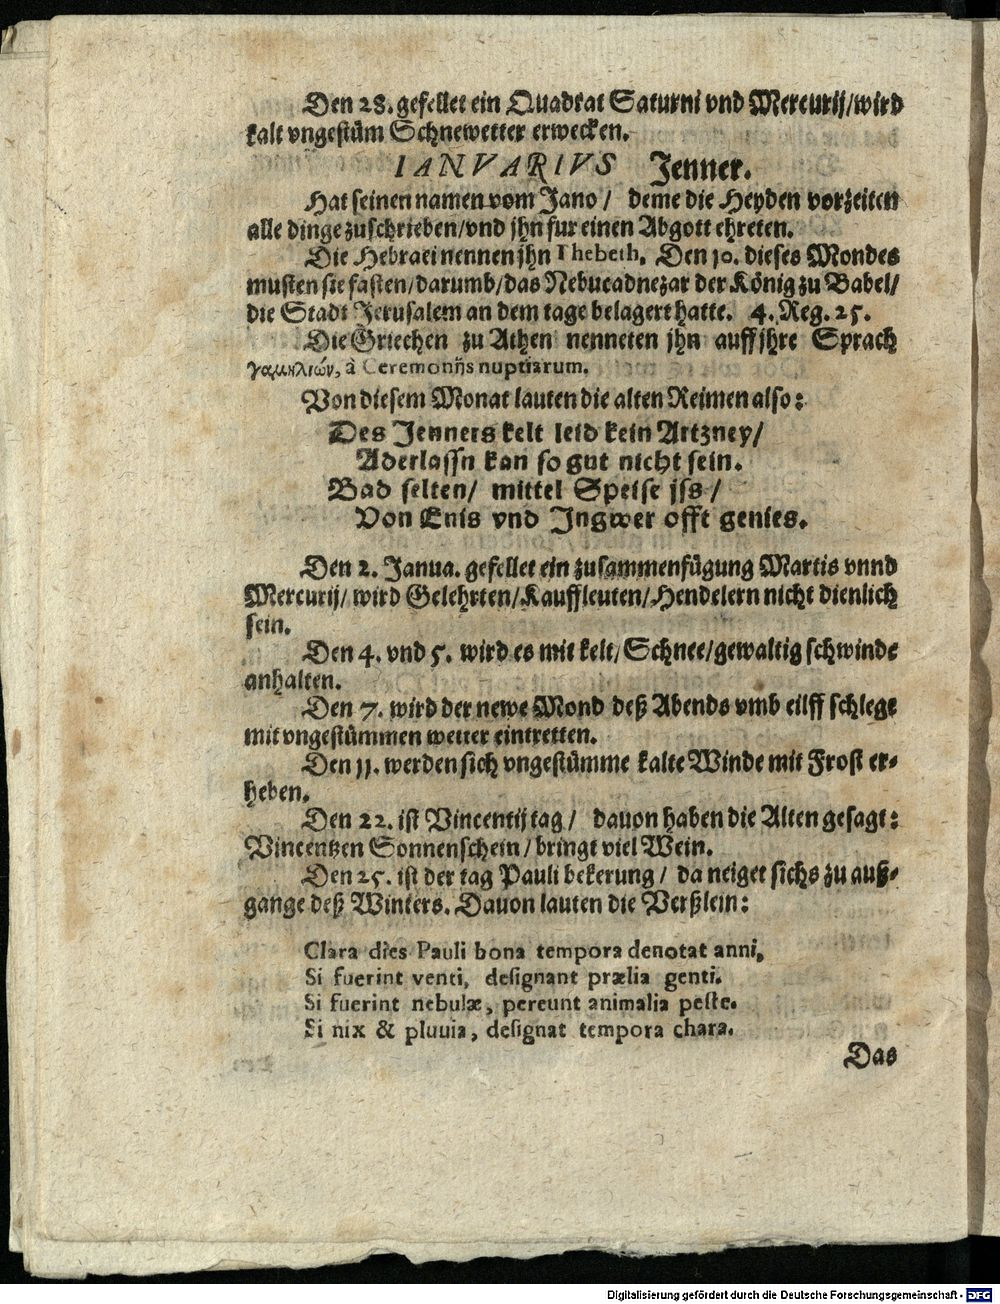 Den 28. gefellet ein Quadrat Saturni vnd Mercurij/wird
kalt vngestüm Schnewetter erwecken.
IANVARIVS Jenner.
Hat seinen namen vom Jano / deme die Heyden vorzeiten
alle dinge zuschrieben/vnd jhn fur einen Abgott ehreten.
Die Hebraei nennen jhn Thebeth. Den 10. dieses Mondes
musten sie fasten/darumb/das Nebucadnezar der König zu Babel/
die Stadt Jerusalem an dem tage belagert hatte. 4. Reg. 25.
Die Griechen zu Athen nenneten jhn auff jhre Sprach
γαμηλιών, à Ceremonijs nuptiarum.
Von diesem Monat lauten die alten Reimen also:
Des Jenners kelt leid kein Artzney/
Aderlassn kan so gut nicht sein.
Bad selten/ mittel Speise jss/
Von Enis vnd Ingwer offt genies.
Den 2. Janua. gefellet ein zusammenfügung Martis vnnd
Mercurij/ wird Gelehrten/Kauffleuten/Hendelern nicht dienlich
sein.
Den 4. vnd 5. wird es mit kelt/Schnee/gewaltig schwinde
anhalten.
Den 7. wird der newe Mond deß Abends vmb eilff schlege
mit vngestümmen wetter eintretten.
Den 11. werden sich vngestümme kalte Winde mit Frost er-
heben.
Den 22. ist Vincentij tag / dauon haben die Alten gesagt:
Vincentzen Sonnenschein/bringt viel Wein.
Den 25. ist der tag Pauli bekerung / da neiget sichs zu auß-
gange deß Winters. Dauon lauten die Verßlein:
Clara dies Pauli bona tempora denotat anni,
Si fuerint venti, designant prælia genti.
Si fuerint nebulæ, pereunt animalia peste.
Si nix & pluuia, designat tempora chara.
Das
Digitalisierung gefördert durch die Deutsche Forschungsgemeinschaft - DFG